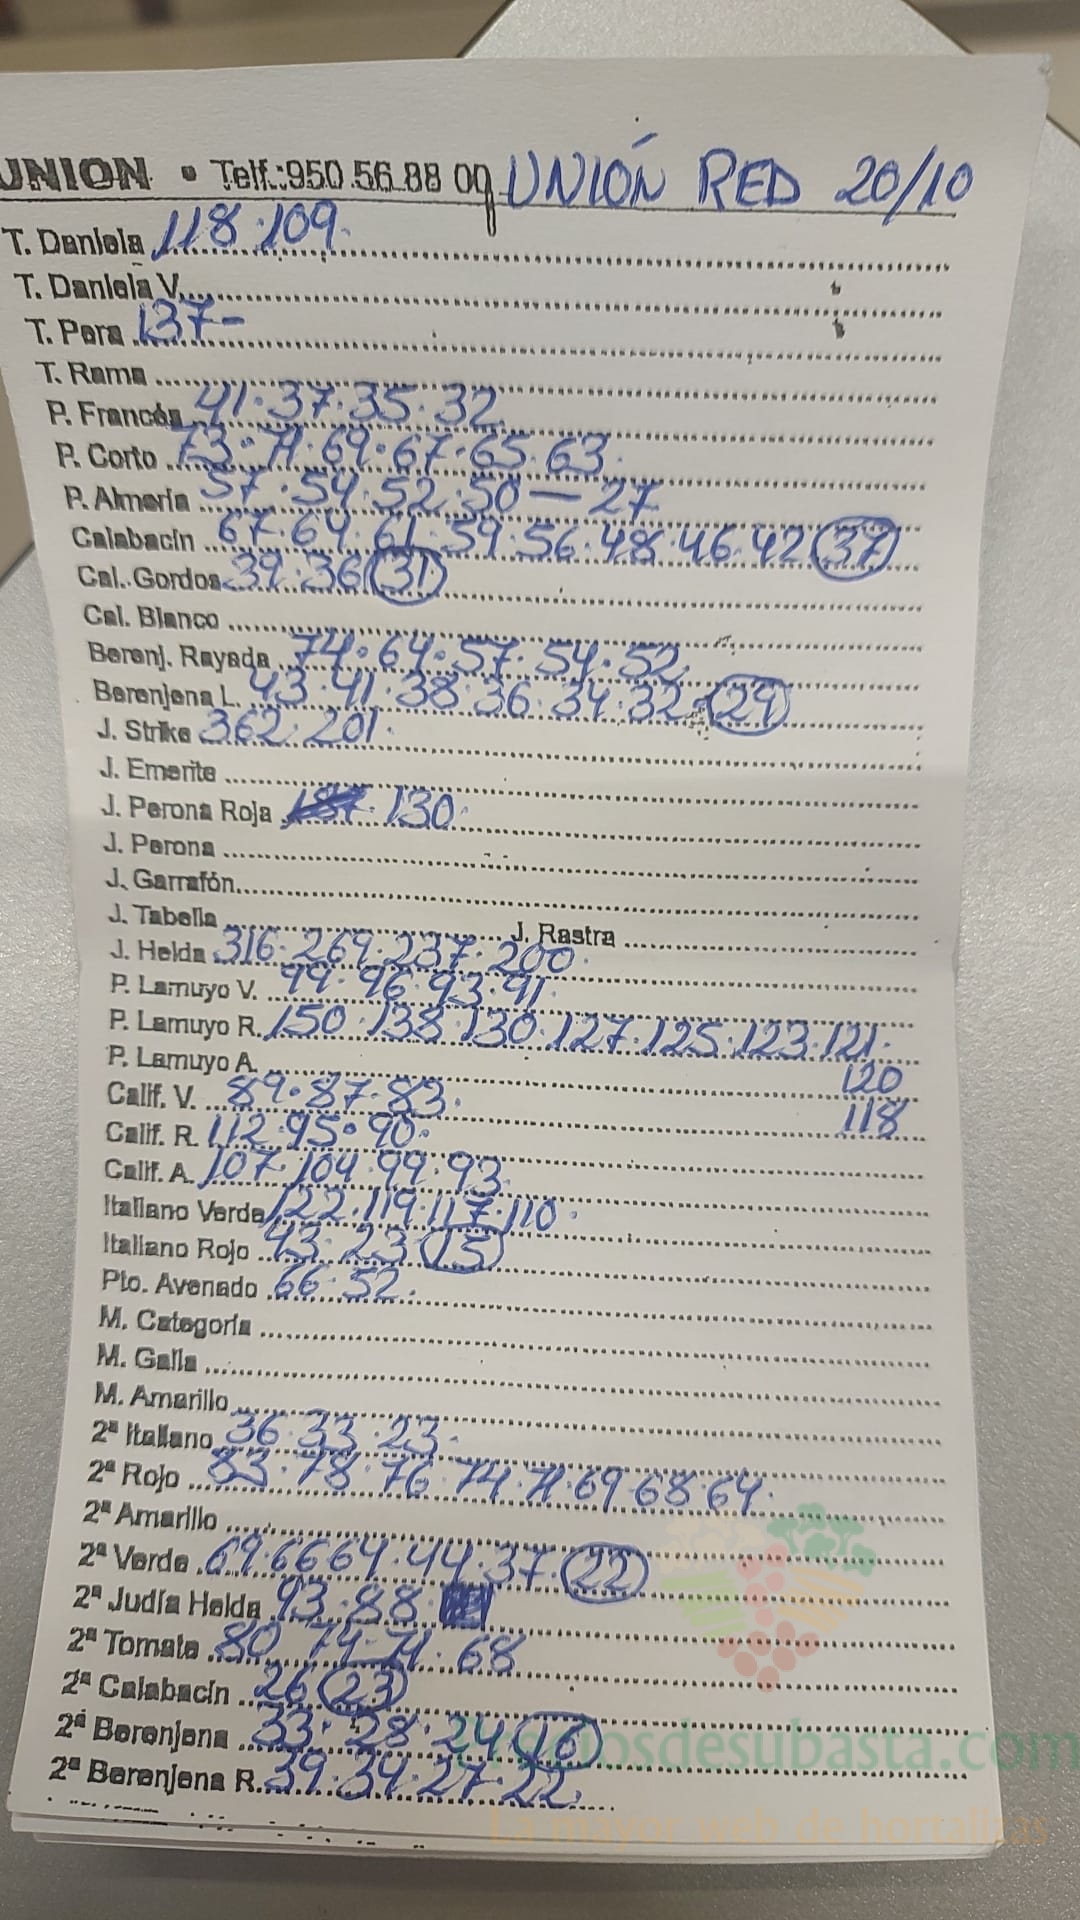 UNION • Telf.:950 56 88 00 UNIÓN RED 20/10
T. Daniela 118·109·
T. Daniela V.
T. Pera 137-
T. Rama
P. Francés 41·37·35·32
P. Corto 73·71·69·67·65·63·
P. Almería 57·54·52·50—27
Calabacín 67·64·61·59·56·48·46·42 37
Cal. Gordos 39·36 31
Cal. Blanco
Berenj. Rayada 74·64·57·54·52
Berenjena L. 43·41·38·36·34·32· 29
J. Strike 362·201·
J. Emerite
J. Perona Roja 130·
J. Perona
J. Garrafón
J. Tabella J. Rastra
J. Helda 316·269·237·200·
P. Lamuyo V. 99·96·93·91·
P. Lamuyo R. 150·138·130·127·125·123·121·
P. Lamuyo A. 120
Calif. V. 89·87·83· 118
Calif. R. 112·95·90·
Calif. A. 107·104·99·93
Italiano Verde 122·119·117·110·
Italiano Rojo 43·23 15
Pto. Avenado 66·52·
M. Categoría
M. Galla
M. Amarillo
2ª Italiano 36·33·23·
2ª Rojo 83·78·76·74·71·69·68·64·
2ª Amarillo
2ª Verde 69·66·64·44·37· 22
2ª Judía Helda 93·88·
2ª Tomate 80·74-71·68
2ª Calabacín 26 23
2ª Berenjena 33·28·24 16
2ª Berenjena R. 39·34·27·22·
preciosdesubasta.com
La mayor web de hortalizas